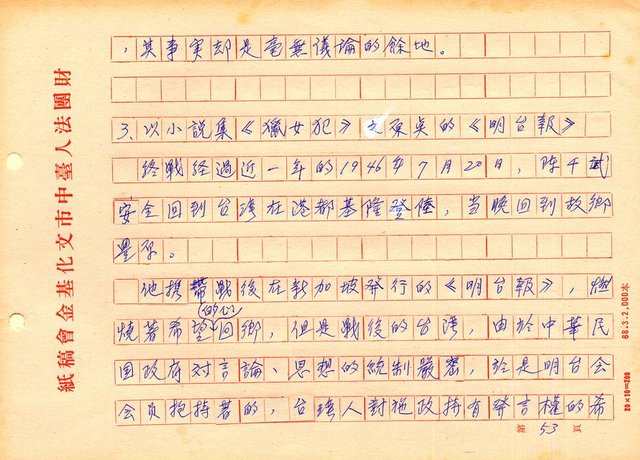 ，其事实却是毫無議論的餘地。
3、以小說集《獵女犯》的《明台報》
終戰经過近一年的1946年7月20日，陈千武
安全回到台湾在港都基隆登陸，当晚回到故鄉
豐原。
他携帶戰後在新加坡發行的《明台報》，燃
燒著希望(的心)回鄉，但是戰後的台湾，由於中華民
国政府对言論、思想的統制嚴密，於是明台会
会员抱持着的，台湾人對施政持有發言權的希
第 53 頁
財團法人臺中市文化基金會稿紙
68.3.2,000本
20×10=200